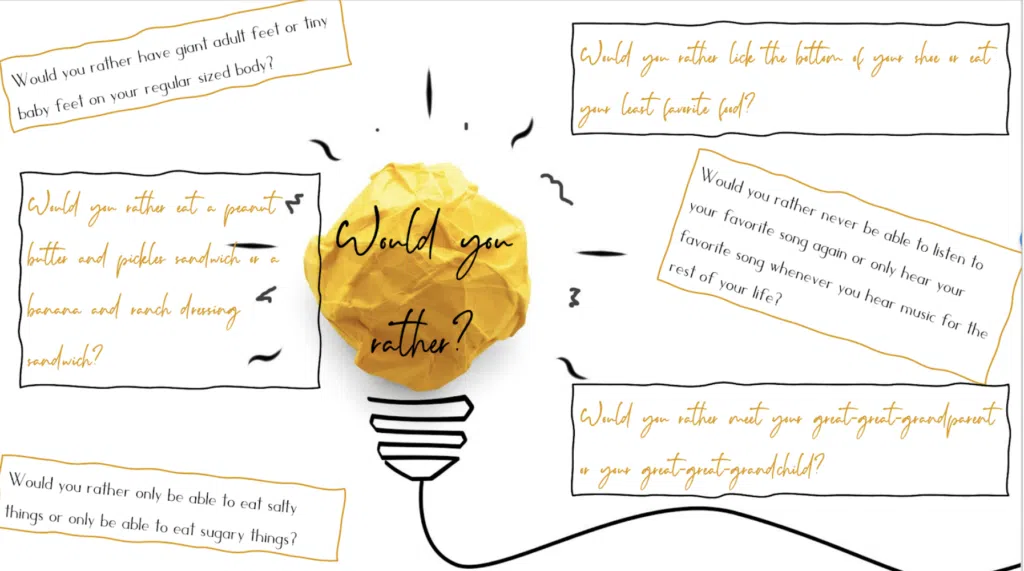 Would you rather have giant adult feet or tiny
baby feet on your regular sized body?
Would you rather lick the bottom of your shoe or eat
your least favorite food?
Would you rather eat a peanut
butter and pickles sandwich or a
banana and ranch dressing
sandwich?
Would you
rather?
Would you rather never be able to listen to
your favorite song again or only hear your
favorite song whenever you hear music for the
rest of your life?
Would you rather meet your great-great-grandparent
or your great-great-grandchild?
Would you rather only be able to eat salty
things or only be able to eat sugary things?